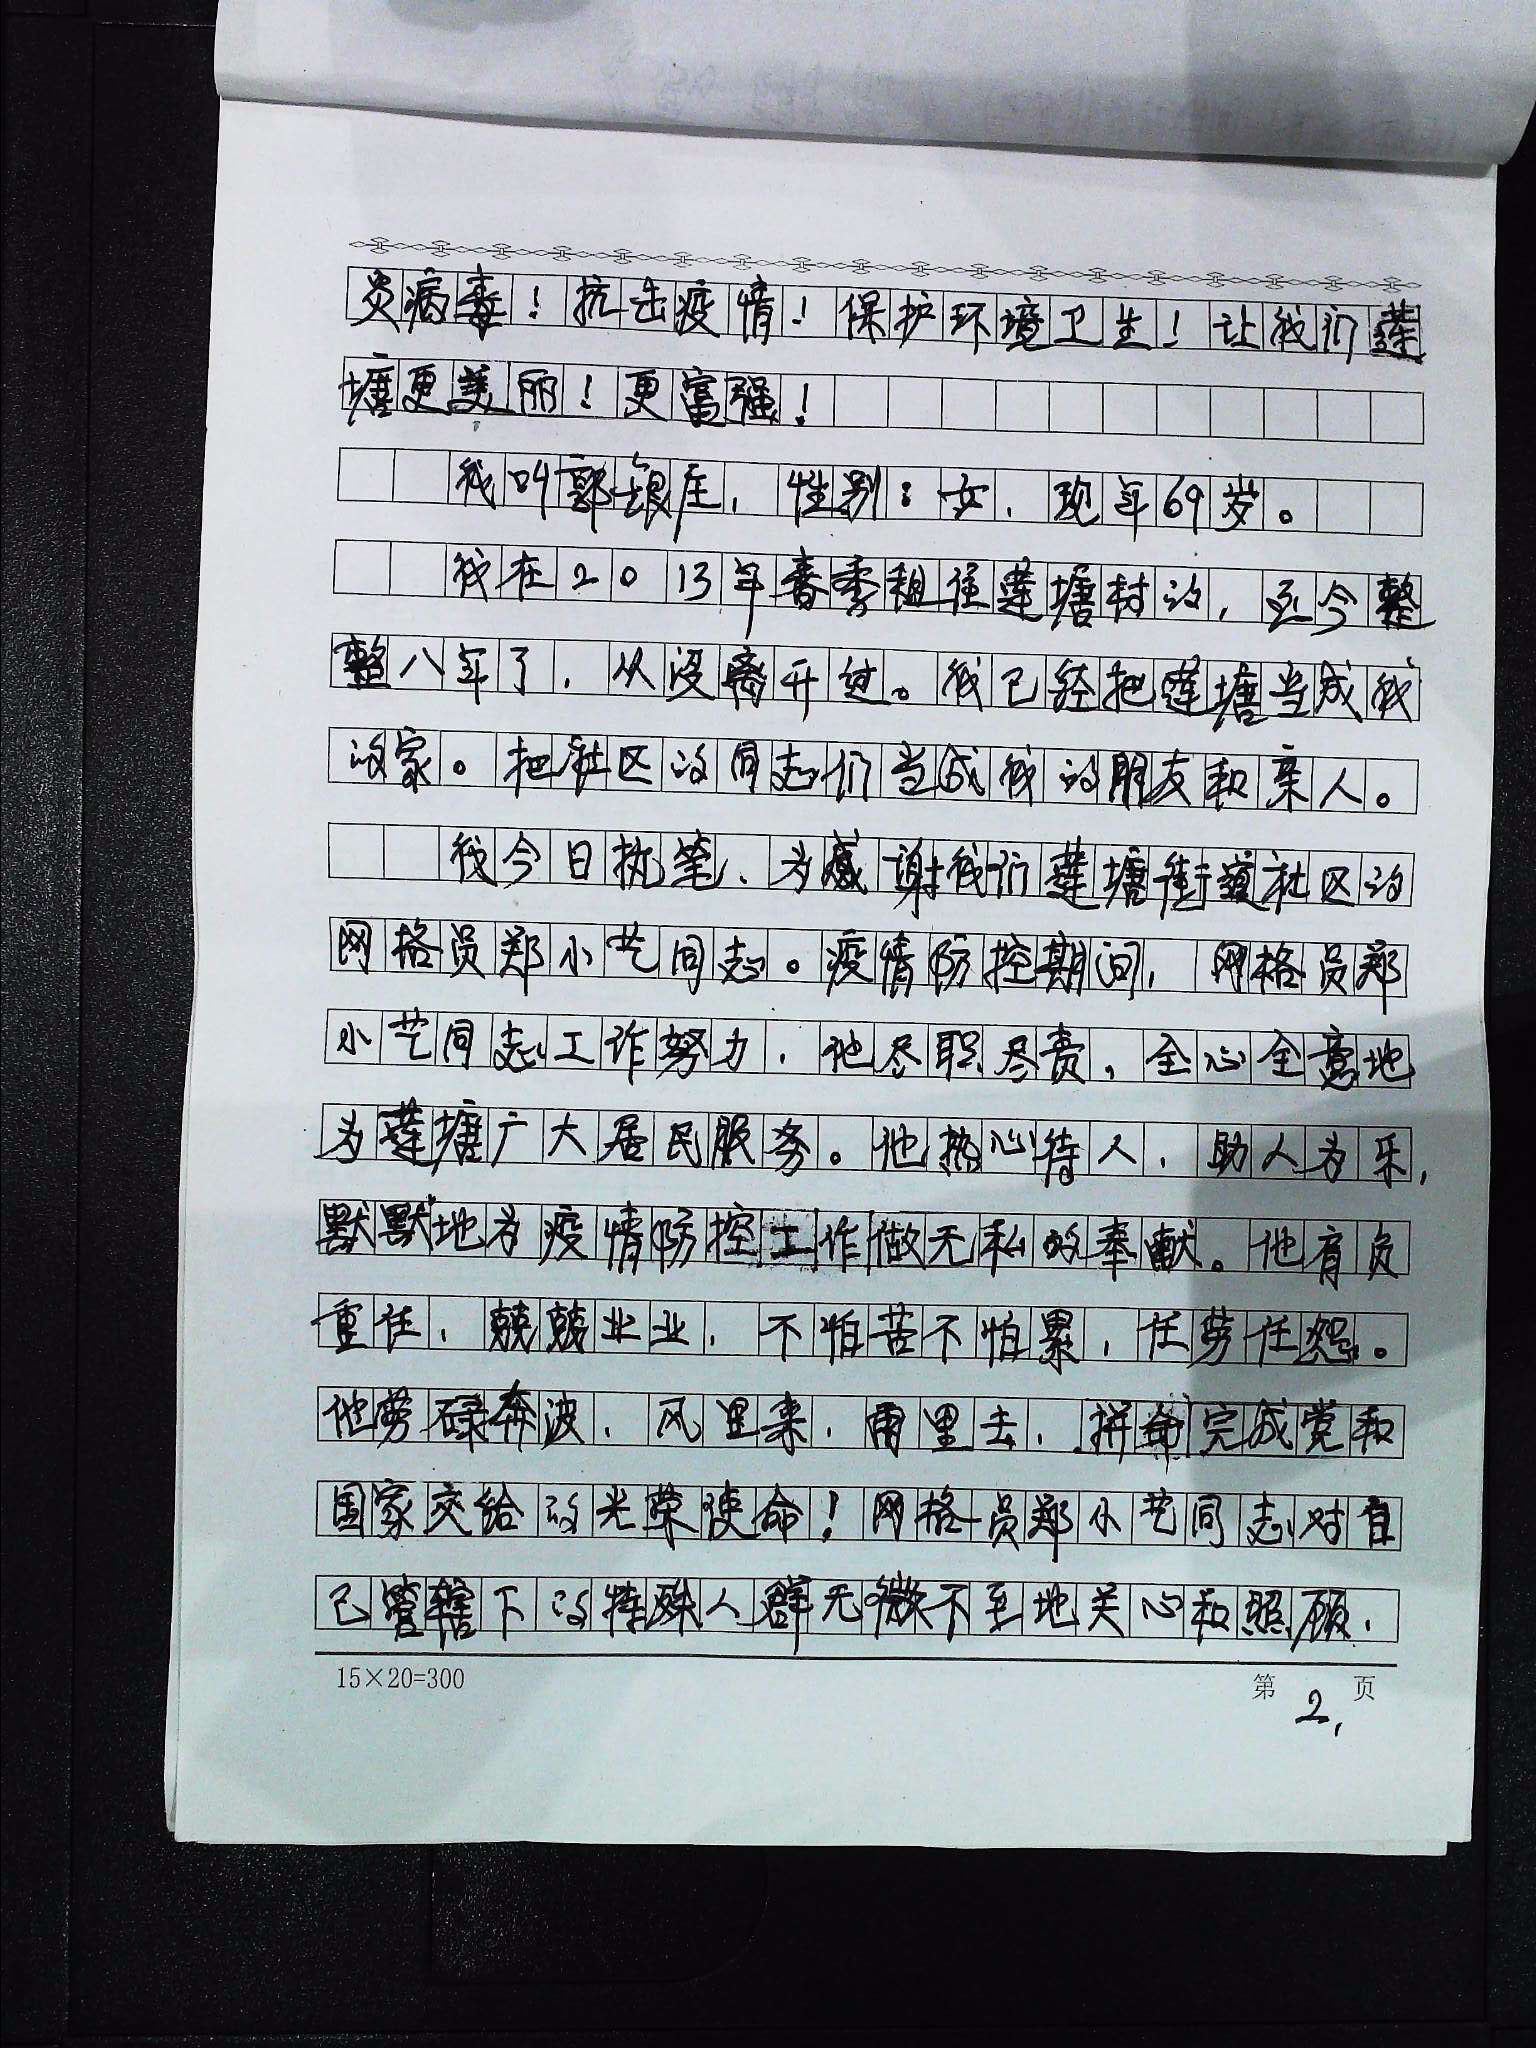 炎病毒！抗击疫情！保护环境卫生！让我们莲
塘更美丽！更富强！
我叫郭银庄，性别：女，现年69岁。
我在2013年春季租住莲塘村的，至今整
整八年了，从没离开过。我已经把莲塘当成我
的家。把社区的同志们当成我的朋友和亲人。
我今日执笔、为感谢我们莲塘街道社区的
网格员郑小艺同志。疫情防控期间，网格员郑
小艺同志工作努力，他尽职尽责，全心全意地
为莲塘广大居民服务。他热心待人，助人为乐，
默默地为疫情防控工作做无私的奉献。他肩负
重任，兢兢业业，不怕苦不怕累，任劳任怨。
他劳碌奔波，风里来，雨里去，拼命完成党和
国家交给的光荣使命！网格员郑小艺同志对自
己管辖下的特殊人群无微不至地关心和照顾，
15×20=300 第2页